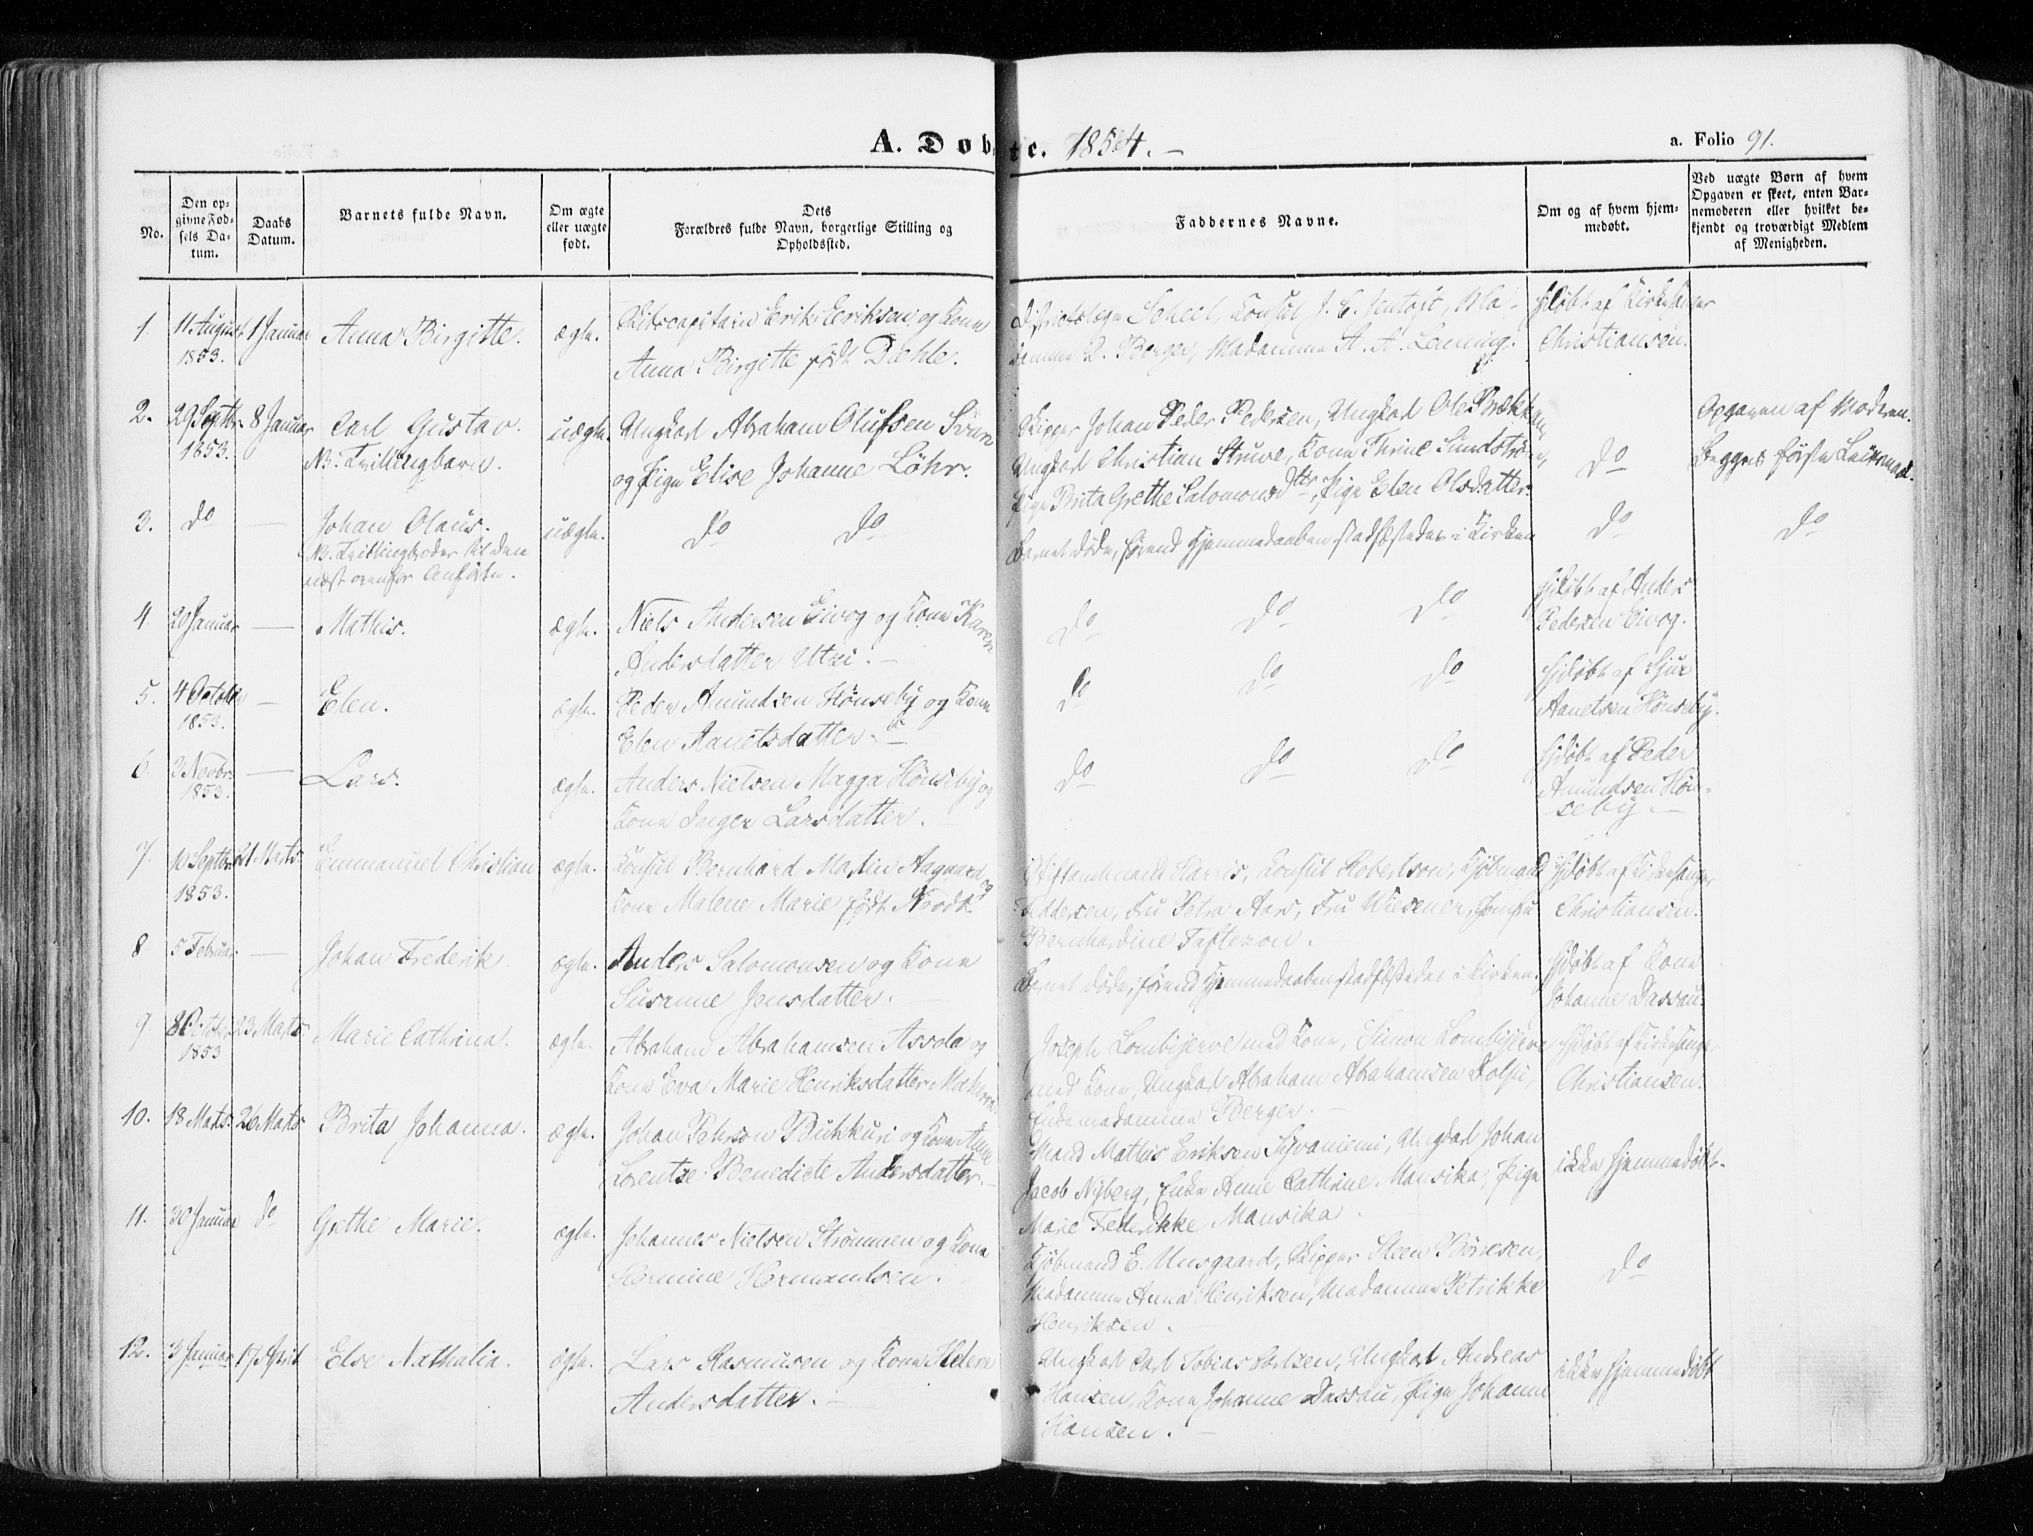 A. Døbte. 1854. —
a. Folio 91.
No.
Den opgivne Fødsels Datum.
Daabs Datum.
Barnets fulde Navn.
Om ægte eller uægte født.
Dets Forældres fulde Navn, borgerlige Stilling og Opholdssted.
Faddernes Navne.
Om og af hvem hjemmedøbt.
Ved uægte Børn af hvem Opgaven er skeet, enten Barnemoderen eller hvilket bekjendt og troværdigt Medlem af Menigheden.
1. 11 August 1853. 1 Januar Anna Birgitte. ægte. Skibscapitain Erik Eriksen og Kone
Anna Birgitte født Diehle.
Districtslæge Scheel, Consul J. C. Jentoft, Ma-
damme D. Berger, Madamme A. A. Lenning.
Hjdøbt af Kirkesanger
Christiansen.
2. 29 Septbr. 1853. 8 Januar Carl Gustav.
NB. Tvillingbarn.
uægte. Ungkarl Abraham Olufsen Svan
og Pige Elise Johanne Löhr.
Skipper Johan Peder Pedersen, Ungkarl Ole Brækkan,
Ungkarl Christian Struve, Kone Thrine Sundstrøm,
Pige Brita Grethe Salomonsdtr, Pige Elen Olsdatter.
Do
Opgaven af Moderen.
Begges første Leiermaal.
3. Do — Johan Olaus.
NB. Tvillingbroder til den
næst ovenfor Anførte.
uægte. Do Do
Barnet døde, førend Hjemmedaaben stadfæstedes i Kirken
Do Do
4. 20 Januar — Mathis. ægte. Niels Andersen Eivog og Kone Karen
Andersdatter Utzi. —
Do Do Do
Hjdøbt af Anders
Pedersen Eivog.
5. 4 October 1853. — Elen. ægte. Peder Amundsen Hönseby og Kone
Elen Aanetsdatter. —
Do Do Do
Hjdøbt af Sjur
Aanetsen Hönseby.
6. 2 Novbr. 1853. — Lars. ægte. Anders Nielsen Magga Hönseby og
Kone Inger Larsdatter. —
Do Do Do
Hjdøbt af Peder
Amundsen Hön-
seby —
7. 10 Septbr. 1853. 21 Marts. Emmanuel Christian ægte. Consul Bernhard Martin Aagaard og
Kone Malene Marie født Krodt.
Stiftamtmand Harris, Consul Robertson, Kjøbmand
Feddersen, Fru Petra Aars, Fru Wiesener, Jomfru
Bernhardine Tafteron.
Hjdøbt af Kirkesanger
Christiansen.
8 5 Februar. — Johan Frederik ægte. Anders Salomonsen og Kone
Susanne Jensdatter. —
Barnet døde, førend Hjemmedaaben stadfæstedes i Kirken.
Hjdøbt af Kone
Johanne Dassau.
9 8 Octbr. 1853 23 Marts Marie Cathrina. ægte. Abraham Abrahamsen Assda og
Kone Eva Marie Henriksdatter
Joseph Lombijerve med Kone, Simon Lombijerve
med Kone, Ungkarl Abraham Abrahamsen
Enkemadamme Berger. —
Hjdøbt af Kirkesanger
Christiansen.
10. 18 Marts. 26 Marts Brita Johanna. ægte. Johan Pehrson Buhkuri og Kone Anne
Lorentze Benedicte Andersdatter. —
Mand Mathis Eriksen Syvaniemi, Ungkarl Johan
Jacob Nyberg, Enke Anne Cathrine Mansika, Pige
Marie Federikke Mansika.
ikke hjemmedøbt.
11. 30 Januar do Grethe Marie. ægte. Johannes Nielsen Strømmen og Kone
Hermine Hermandsen. —
Kjøbmand E. Unsgaard, Skipper Steen Börresen,
Madamme Anna Henriksen, Madamme Petrikke
Henriksen. —
Do
12. 3 Januar 17 April Else Nathalia. ægte. Lars Rasmusen og Kone Helene
Andersdatter. —
Ungkarl Carl Tobias Carlsen, Ungkarl Andreas
Hansen, Kone Johanne Dassau, Pige Johanne
Hansen. —
ikke hjemmedøbt